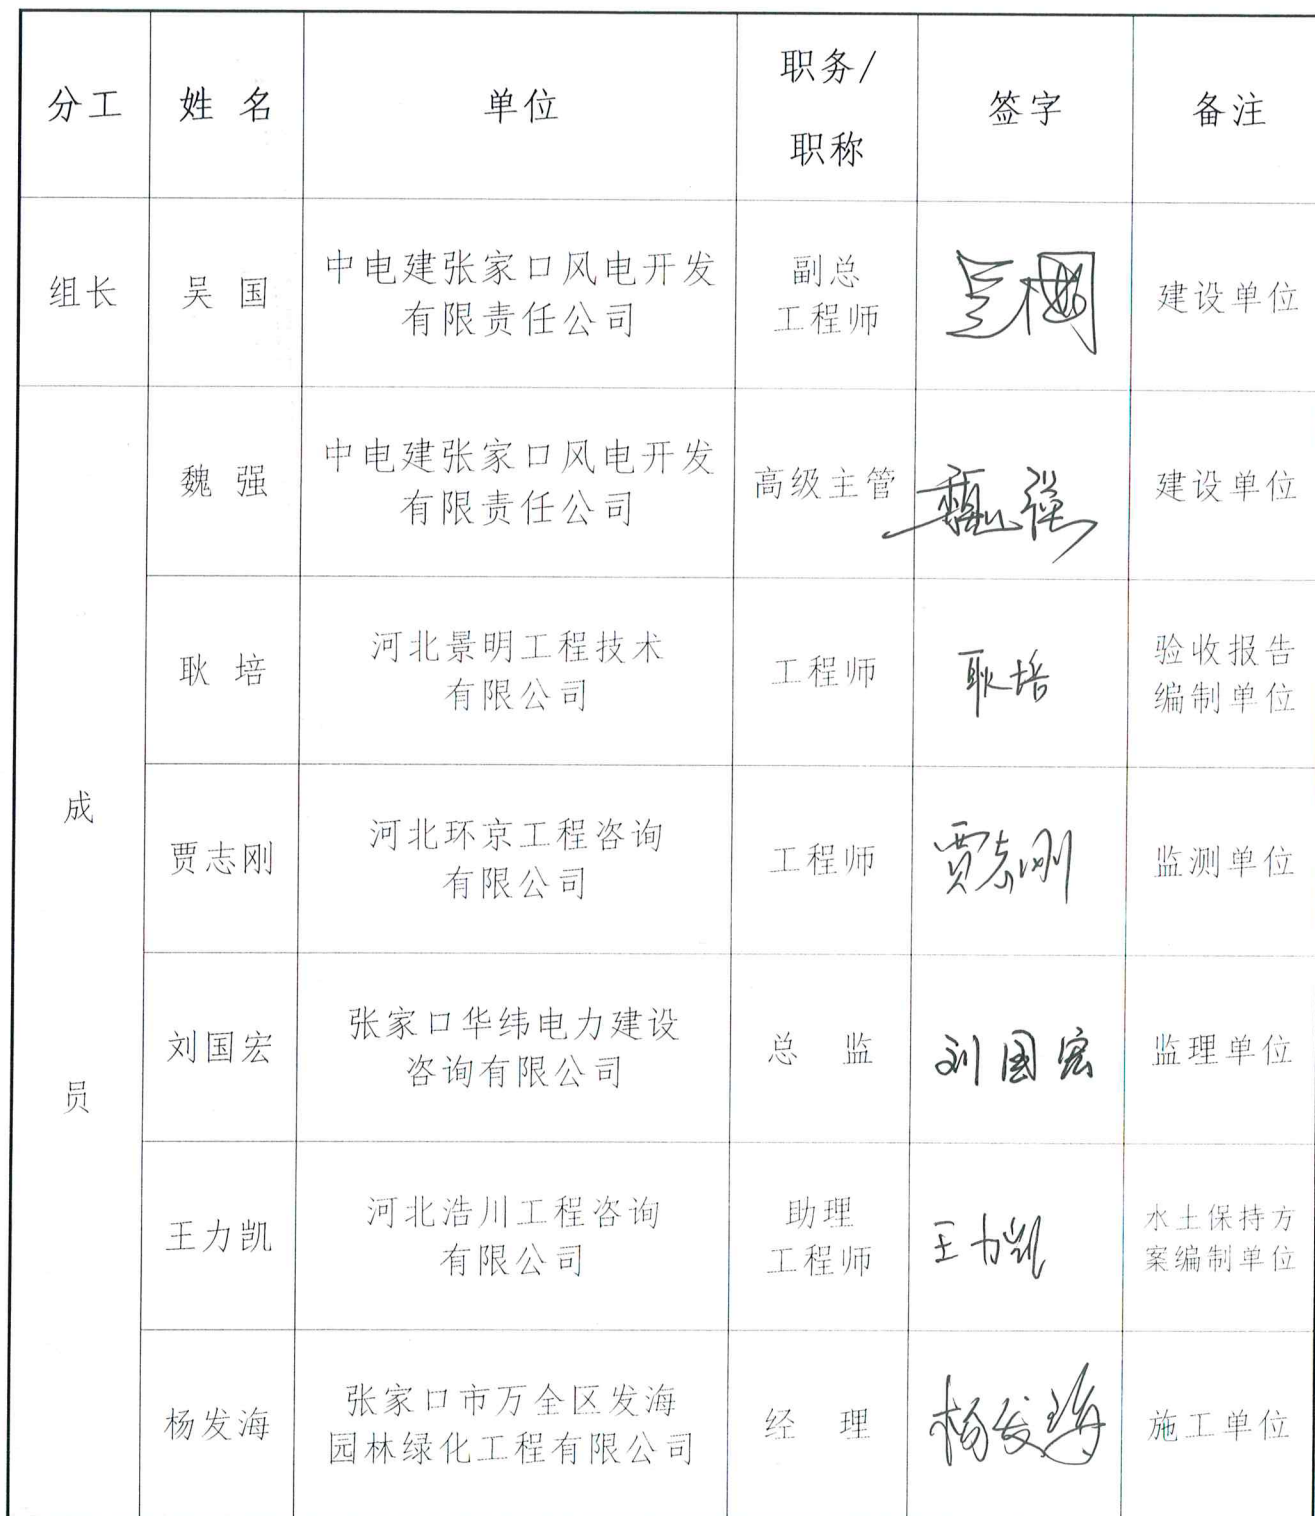 分工 姓 名 单位 职务/
职称 签字 备注
组长 吴 国 中电建张家口风电开发
有限责任公司 副总
工程师 吴国 建设单位
成
员
魏 强 中电建张家口风电开发
有限责任公司 高级主管 魏强 建设单位
耿 培 河北景明工程技术
有限公司 工程师 耿培 验收报告
编制单位
贾志刚 河北环京工程咨询
有限公司 工程师 贾志刚 监测单位
刘国宏 张家口华纬电力建设
咨询有限公司 总 监 刘国宏 监理单位
王力凯 河北浩川工程咨询
有限公司 助理
工程师 王力凯 水土保持方
案编制单位
杨发海 张家口市万全区发海
园林绿化工程有限公司 经 理 杨发海 施工单位